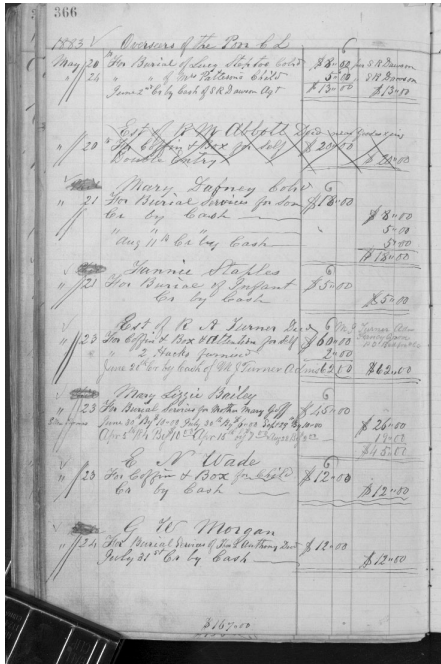 366
1883 Overseers of the Poor C L 6
May 20 For Burial of Lucy Steptoe Cold $8.00 for S R Dawson
" 24 " " of Mrs Patterns Child 5.00 S R Dawson
June 2nd Cr by Cash of S R Dawson Agt $13.00 $13.00
Est of R M Abbott Decd
" 20 For Coffin & Box for Self $20.00
Double Entry $20.00
Mary Dabney Cold 6
" 21 For Burial Services for Son $18.00
Cr by Cash $8.00
" " " 5.00
Aug 11th Cr by Cash 5.00
$18.00
Fannie Staples 6
" 21 For Burial of Infant $5.00
Cr by Cash $5.00
Est of R A Turner Decd 6
" 23 For Coffin & Box & Attention for Self $60.00
" 2 Hacks furnied 2.00
June 20th Cr by Cash of M G Turner Adms 62.00 $62.00
Mary Lizzie Bailey 6
" 23 For Burial Services for Mother Mary Goff $45.00
June 30 By 10.00 July 30th By 5.00 By 10.00 $26.00
19.00
$45.00
E N Wade 6
" 23 For Coffin & Box for Child $12.00
Cr by Cash $12.00
G W Morgan
" 24 For Burial Services of Anthony Decd $12.00
July 31st Cr by Cash $12.00
$167.00